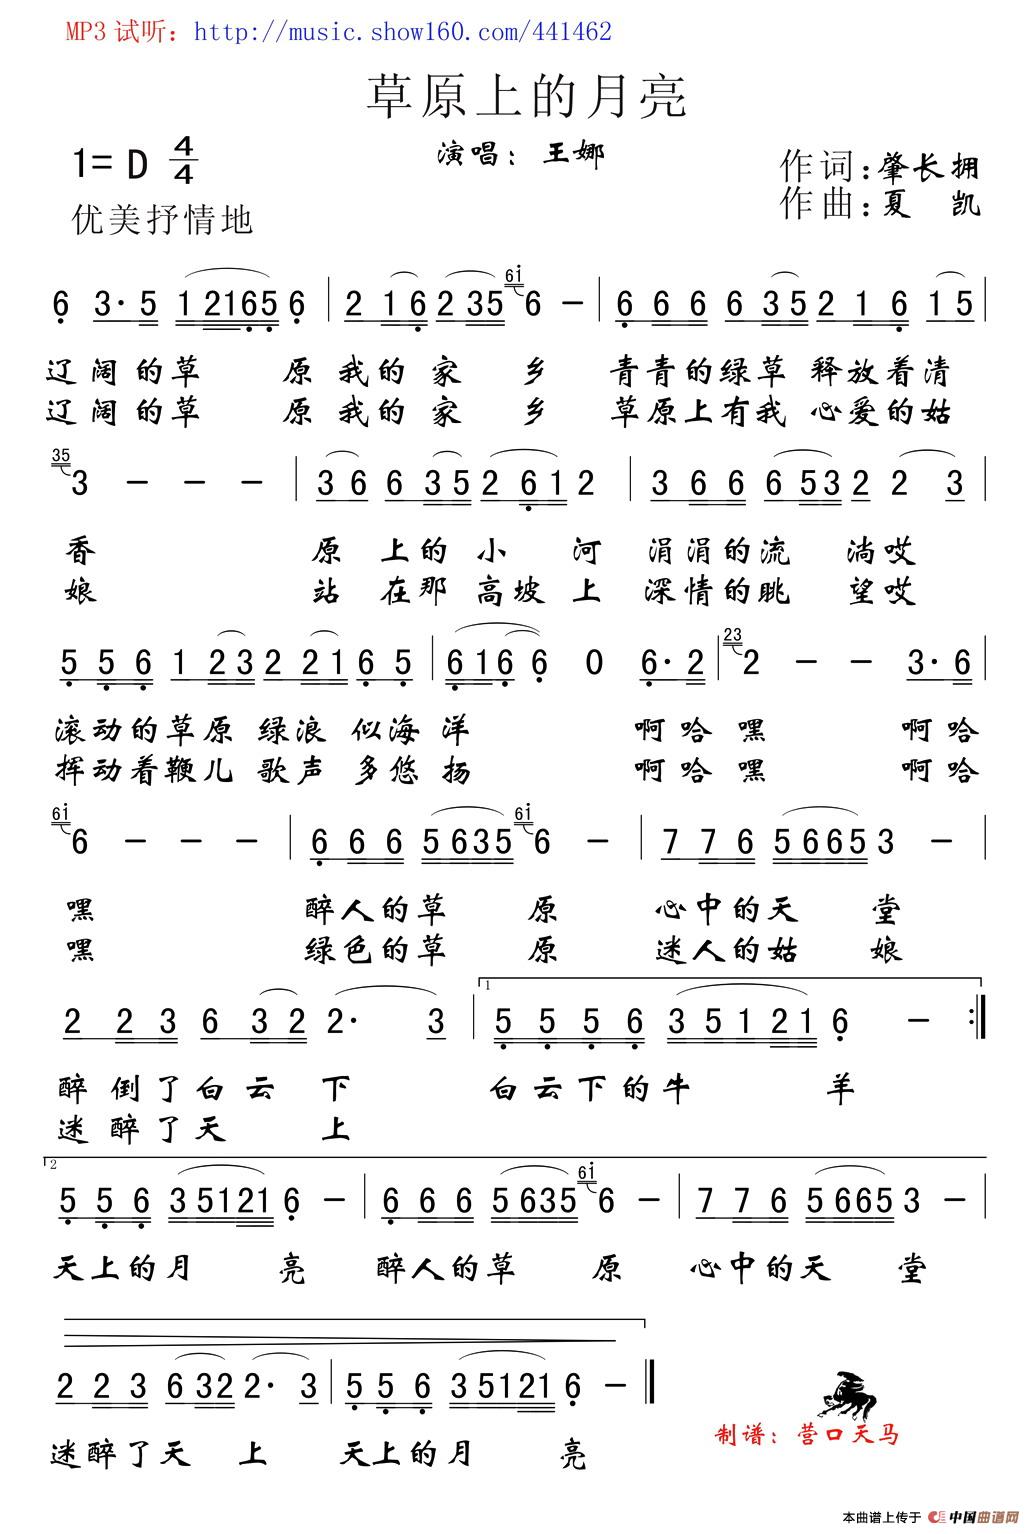 MP3 试听：http://music.show160.com/441462
草原上的月亮
1= D 4/4
演唱：王娜
作词：肇长拥
优美抒情地
作曲：夏 凯
6 3· 5 1 2165 6 | 2 16 2 35 6i 6 － | 6 6 6 6 35 2 1 6 1 5 |
辽阔的草 原 我的 家 乡 青青的绿草 释放着清
辽阔的草 原 我的 家 乡 草原上有我 心爱的姑
35 3 － － － | 3 6 6 35 2 6 1 2 | 3 6 6 6 53 2 2 3 |
香 原 上的 小 河 涓涓的流 淌哎
娘 站 在那 高坡 上 深情的眺 望哎
5 5 6 1 23 2 21 6 5 | 616 6 0 6· 2 | 23 2 － － 3· 6 |
滚动的草原 绿浪 似海 洋 啊哈 嘿 啊哈
挥动着鞭儿 歌声 多悠 扬 啊哈 嘿 啊哈
6i 6 － － － | 6 6 6 5635 6i 6 － | 7 7 6 5665 3 － |
嘿 醉人的草 原 心中的天 堂
嘿 绿色的草 原 迷人的姑 娘
2 2 3 6 32 2· 3 | 1 5 5 5 6 3 5 1 21 6 － :|
醉 倒了白云 下 白云下的牛 羊
迷 醉了天 上
2 5 5 6 3 5121 6 － | 6 6 6 5635 6i 6 － | 7 7 6 5665 3 － |
天上的月 亮 醉人的草 原 心中的天 堂
2 2 3 6 32 2· 3 | 5 5 6 3 5121 6 － |
迷醉了天 上 天上的月 亮
制谱：营口天马
本曲谱上传于 中国曲谱网